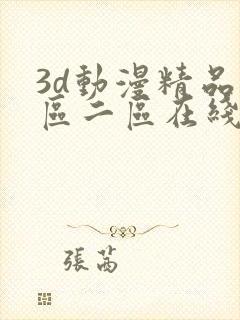 3d動漫精品
區二區在綫
張萵